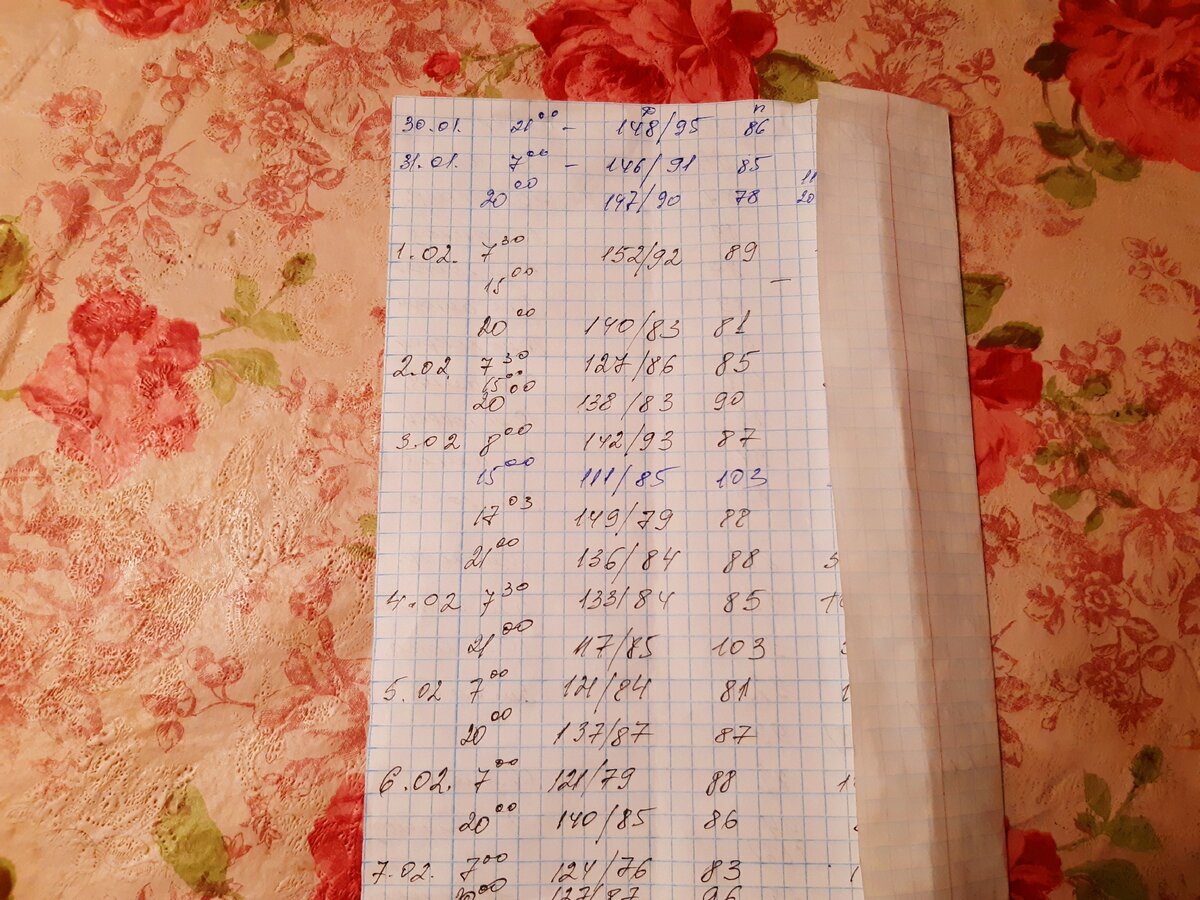 30.01. 21⁰⁰ - 148/95 86
31.01. 7⁰⁰ - 146/91 85
20⁰⁰ 147/90 78
1.02. 7³⁰ 152/92 89
15⁰⁰ —
20⁰⁰ 140/83 81
2.02 7³⁰ 127/86 85
15⁰⁰
20⁰⁰ 138/83 90
3.02 8⁰⁰ 142/93 87
15⁰⁰ 111/85 103
17⁰³ 149/79 88
21⁰⁰ 136/84 88
4.02 7³⁰ 133/84 85
21⁰⁰ 117/85 103
5.02 7⁰⁰ 121/84 81
20⁰⁰ 137/87 87
6.02. 7⁰⁰ 121/79 88
20⁰⁰ 140/85 86
7.02. 7⁰⁰ 124/76 83
20⁰⁰ 127/87 96